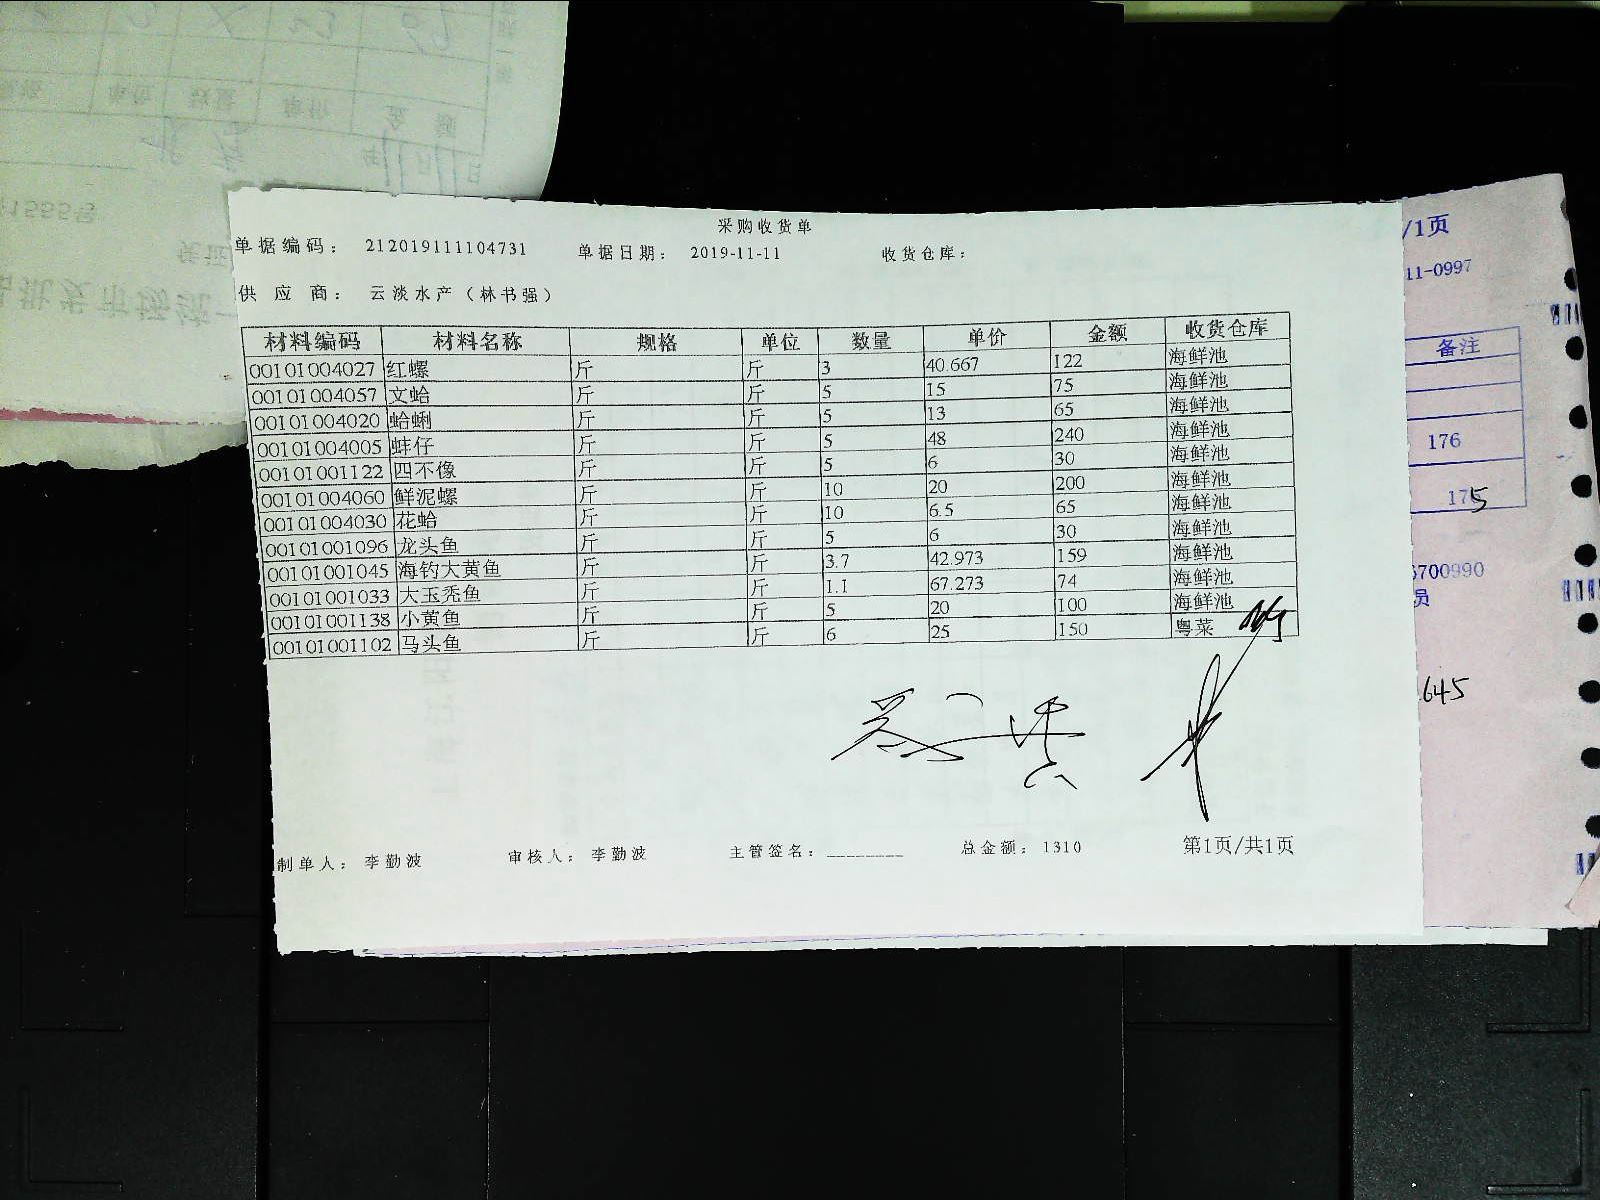 采购收货单
单据编码： 212019111104731 单据日期： 2019-11-11 收货仓库：
供 应 商： 云淡水产（林书强）
材料编码 材料名称 规格 单位 数量 单价 金额 收货仓库
00101004027 红螺 斤 斤 3 40.667 122 海鲜池
00101004057 文蛤 斤 斤 5 15 75 海鲜池
00101004020 蛤蜊 斤 斤 5 13 65 海鲜池
00101004005 蛏仔 斤 斤 5 48 240 海鲜池
00101001122 四不像 斤 斤 5 6 30 海鲜池
00101004060 鲜泥螺 斤 斤 10 20 200 海鲜池
00101004030 花蛤 斤 斤 10 6.5 65 海鲜池
00101001096 龙头鱼 斤 斤 5 6 30 海鲜池
00101001045 海钓大黄鱼 斤 斤 3.7 42.973 159 海鲜池
00101001033 大玉秃鱼 斤 斤 1.1 67.273 74 海鲜池
00101001138 小黄鱼 斤 斤 5 20 100 海鲜池
00101001102 马头鱼 斤 斤 6 25 150 粤菜
制单人： 李勤波 审核人： 李勤波 主管签名：________ 总金额： 1310 第1页/共1页
/1页
11-0997
备注
176
175
5700990
员
645